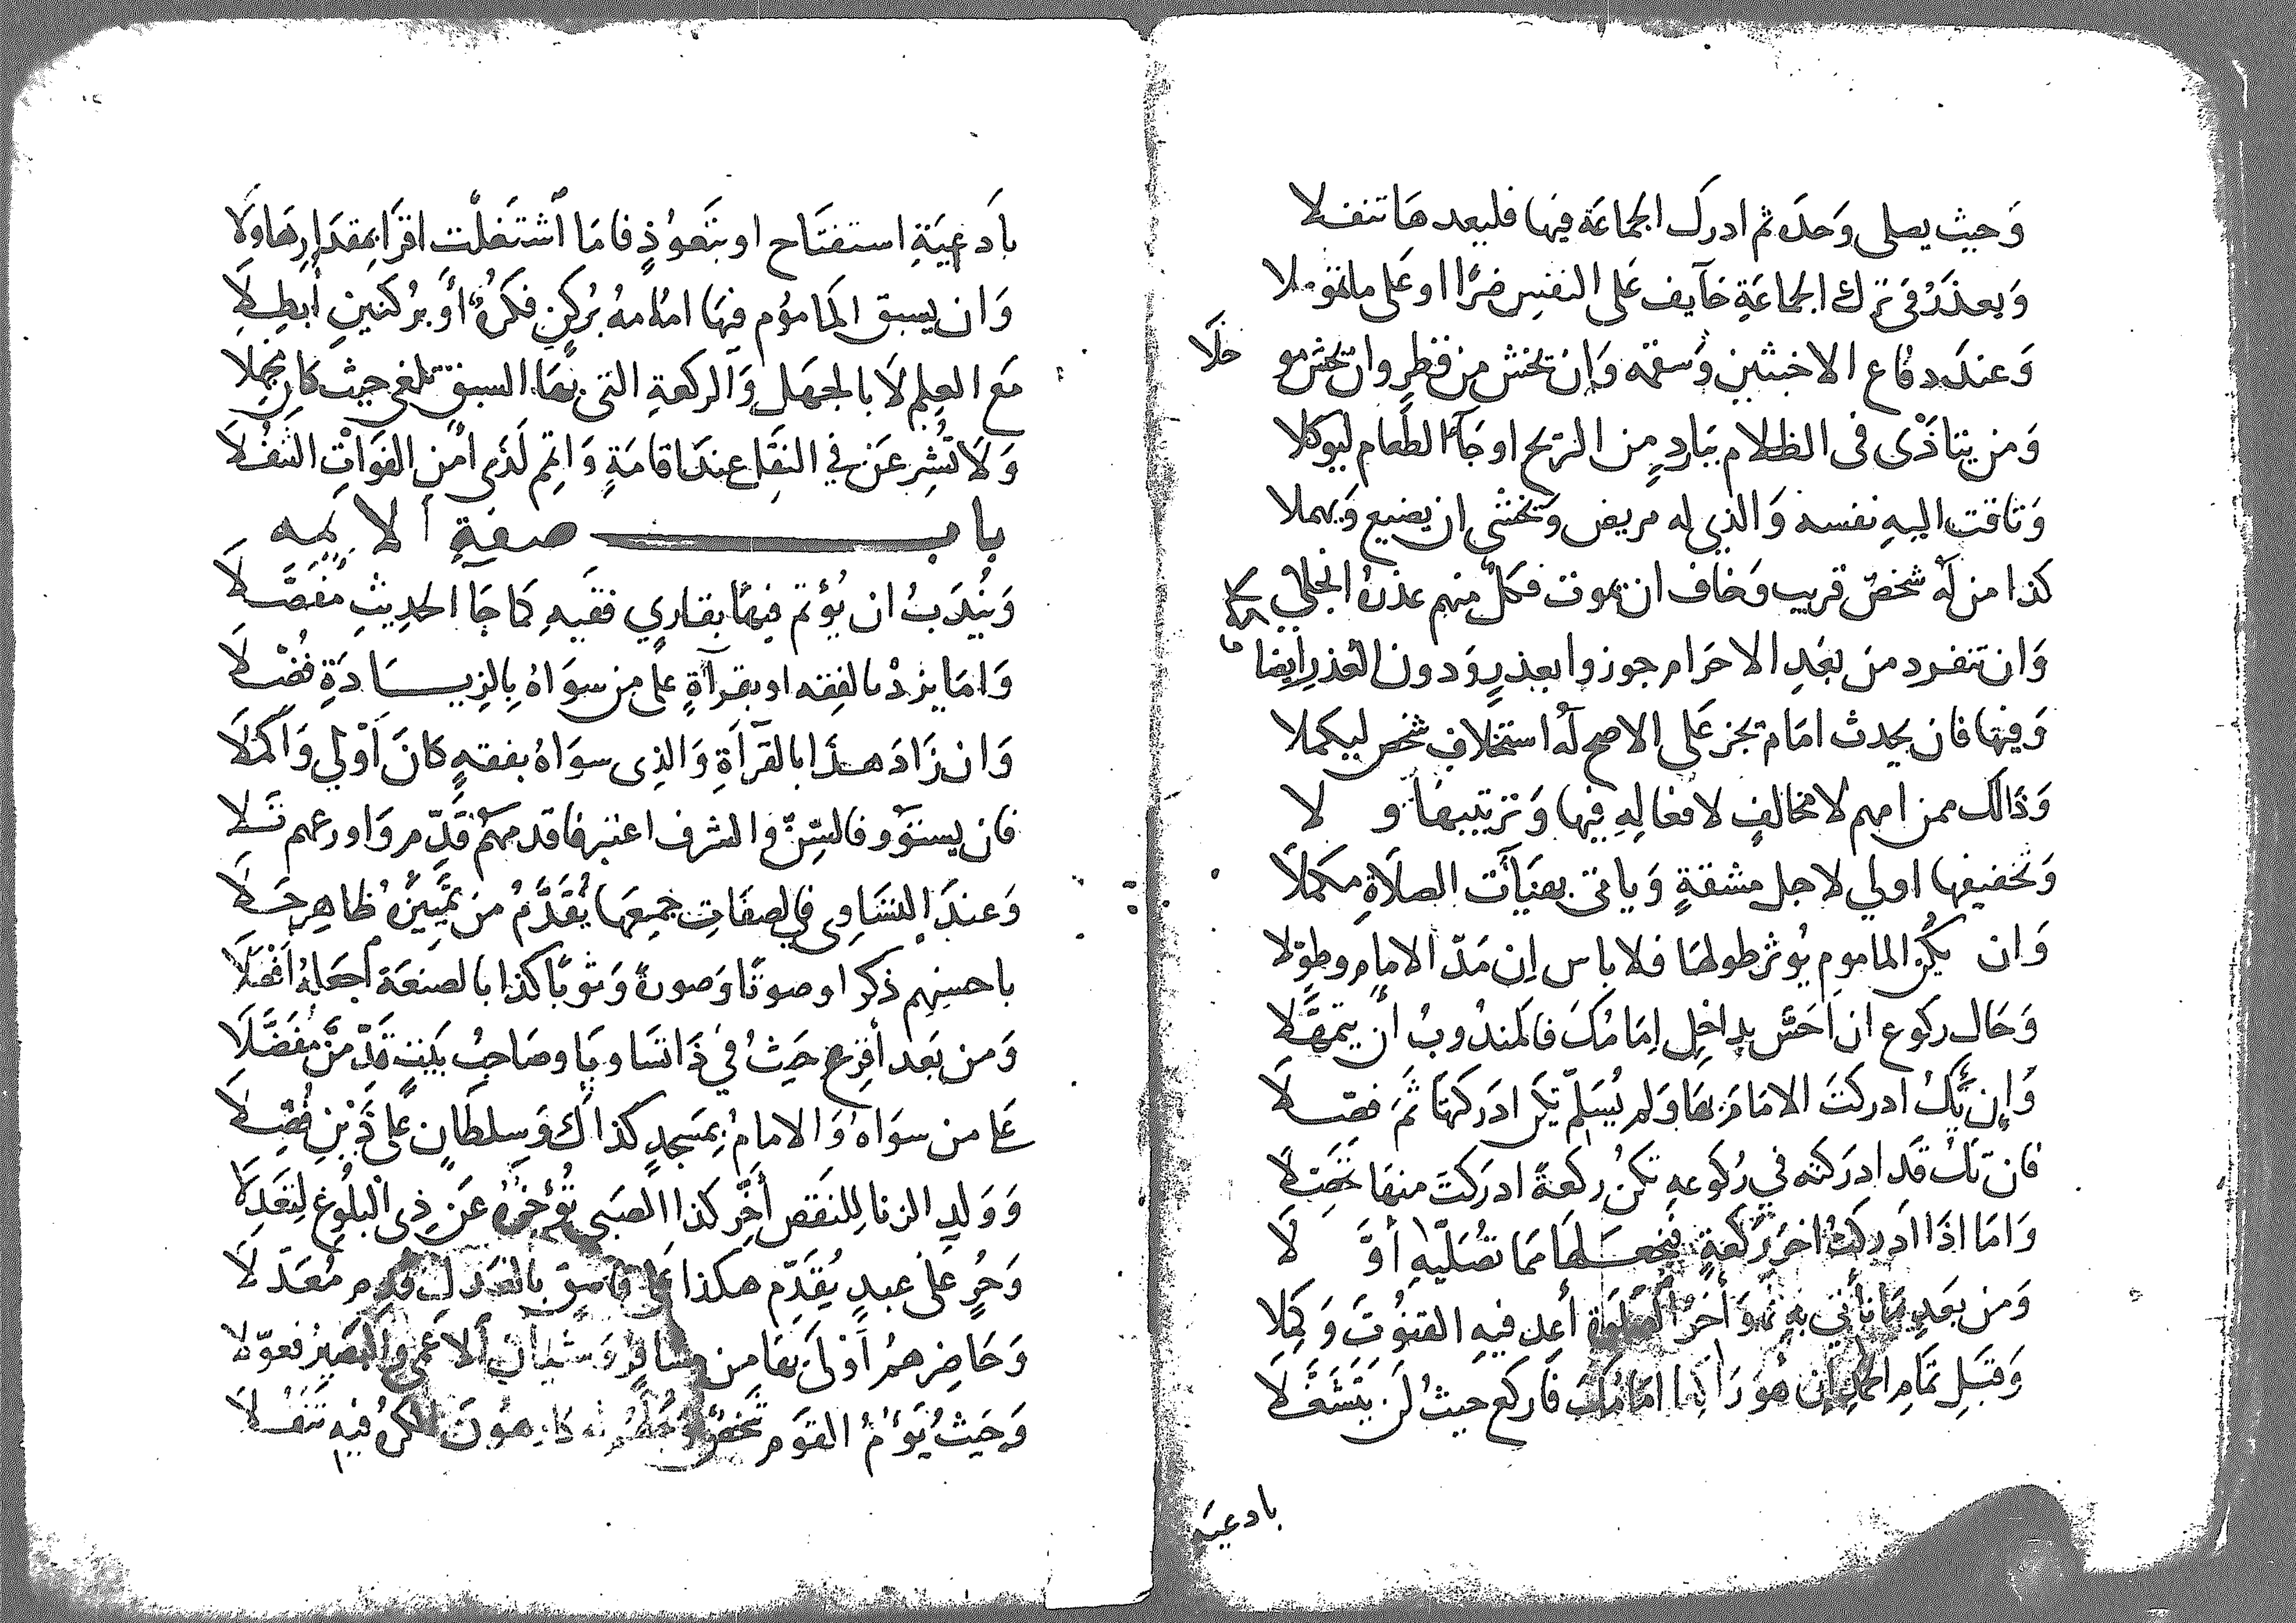 وَحيث يصلى وَحده ثم ادرك الجماعَة فيها فليعدهَا تنفلا
وَيعذَرُ في ترك الجماعَةِ خآيف عَلى النفسِ ضرًا او عَلى ما تمولا
وَعندَ دفاع الاخبثين وَسقمه وَان تخش من فطرٍ وان تخش موحلَا
وَمن يتاذى فى الظلام ببَاردٍ من الريح او جَآ الطعَام ليوكلا
وَتاقت اليهِ نفسه وَالذي له مريض وَتخشى ان يضيع وَيهملا
كذا من لَهُ شخصٌ قريب وَخاف ان يموت فكلٌ منهم عذرهُ انجلي
وَان تنفرد من بَعْدِ الاحرام جوزوا بعذرٍ وَدون العُذرِ ايضا
وَفيها فان يحدث امَام تجز عَلى الاصح لهُ استخلاف شخص ليكملا
وَذَالك ممن امهم لا مخالفٍ لافعَالِهِ فيها وَترتيبهَا ولا
وَتخفيفها اولي لاجل مشقةٍ وَياتى بهيَآت الصلاةِ مكملاَ
وَان يكن الماموم يُوثر طولهَا فلا باس إن مَدّ الامام وطوّلا
وَحَال ركوع ان اَحَسَّ بداخِلٍ اِمَامُكَ فالمندُوبُ أن يتمهَّلا
وَإِن تَّكُ ادركتَ الامَامَ بهَا وَلم يُسَلِّم تكن ادَركتهَا ثمَّ فصّلا
فان تك قَد ادرَكته في رُكوعهِ تكنْ ركعةً ادرَكتَ منهَا تحَصّلا
وَامَا اذَا ادركتُ اخرَ ركعةٍ فتجعَلهَا ممَا تصُلّيهِ أوَّلَا
وَمن بَعدِ مَا تأتي بهِ نحوَ أخرَ الصَلوة أعِد فيهِ القنوُتَ وَكمِلا
وَقبَلِ تمَامِ الحمدِ إن هوَ رَاكعًا امَامُكَ فَاركع حيثُ لَن يَتَشَغَّلَا
بادعيَه
بادعِيَةِ استفتَاح او بتَعوُذٍ فامَا اَشتَغلْت اقرَا بمقدَارِهَا وَلَا
وَان يسبق المامُوم فيهَا امَامهُ بُركنٍ فكَرهٌ اَو بُركنَينِ أَبطِلَا
مَع العِلم لَا بالجهَل وَالركعةِ التى بهَا السبق تلغى حيث كان مجملا
وَلاَ تشرعَن في النفَّل عندَ اقامَةٍ وَاتم لَدَى أمن الفوَات التنفُلاَ
باب صفةِ الايمه
وَيُندَبُ ان يُؤتم فيهَا بقاري فقيهِ كما جَا الحدِيثِ مُفَصَّلَا
وَامَا يزدْ بالفِقه او بقرآةٍ علَى من سوَاهُ بِالزيَادَةِ فُضّلَا
وَان زَادَ هذَا بالقرآةِ وَالذِى سوَاهُ بفقهٍ كانَ اَوْلي وَاكملَا
فان يستوَو فالسِّنّ والشرف اعتبر فاقدمهمْ قدّم وَاورعهم تَلا
وَعندَ التسَاوِى في الصفَاتِ جميعَها يُقدَّمُ من تمييَزُهُ ظاهِر حَلا
باحسنِهم ذكرا وصوتًا وَصورةً وَثوبًا كذا بالصنعَة أجعلهُ افضَلَا
وَمن بَعد أقرع حَيثُ في ذَا تسَاويَا وصَاحبُ بَيتٍ قدّمنَّ مفَضَّلَا
عَلى من سوَاهُ وَالامامُ بمَسجدٍ كذاكَ وَسِلطَانٍ علَى ذَينِ فُضِّلَا
وَوَلدِ الزنا لِلنَقصِ أخِّر كذا الصَبي تُؤخِرهُ عَن ذِى البُلُوغِ لِتعَدِلَا
وَحُرٍ على عبدٍ يُقَدّم هكذا علَى فاسقٍ بالعَدلِ قدِّم مُعَدّلَا
وَحَاضِرهمُ اَوْلَى بهَا من مسَافرٍ وَسَيّان اَلاعمى والبَصِيرُ فعوّلا
وَحَيْثُ يَؤُمُ القَومَ شخصٌ كارِهُونَ فيهِ تنَفُلَا